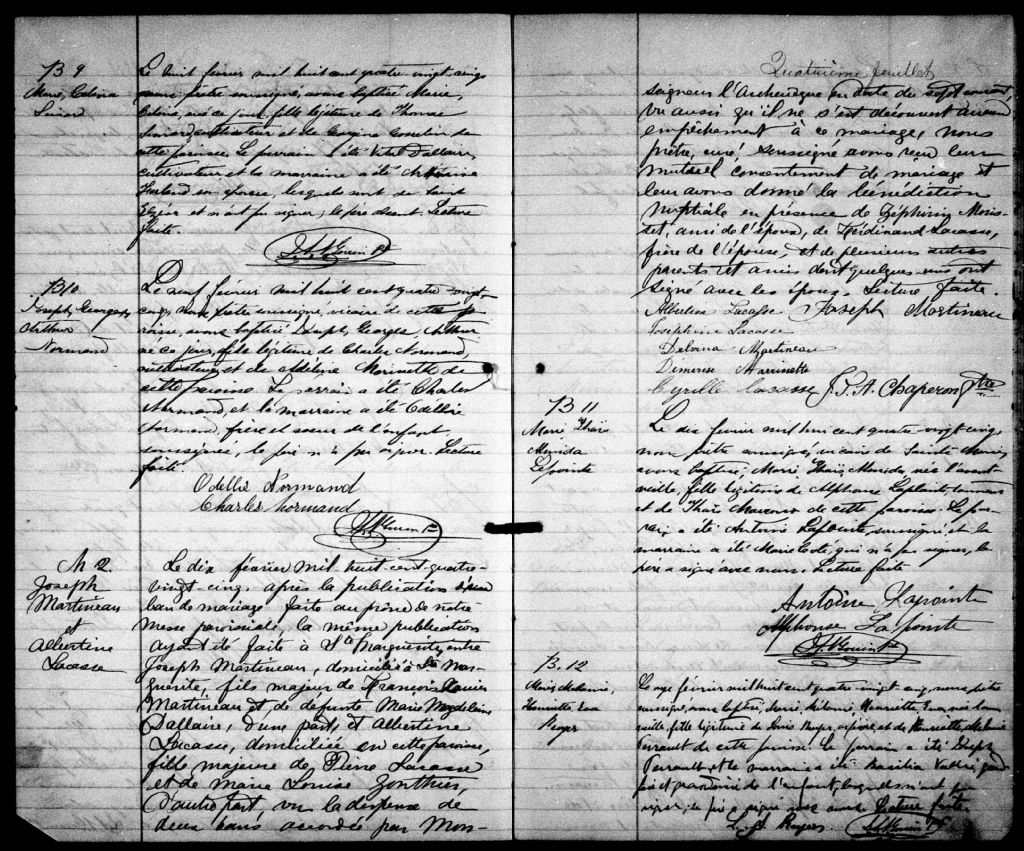 B 9
Marie, Celina
Simard
Le huit février mil huit cent quatre-vingt-cinq
nous prêtre soussigné, avons baptisé Marie,
Celina, née ce jour, fille légitime de Thomas
Simard, cultivateur et de
cette paroisse. Le parrain a été Vital Dallaire,
cultivateur, et la marraine a été
son épouse, lesquels sont de Saint
Elzéar et n'ont pu signer, le père absent. Lecture
faite.
B10
Joseph, Georges,
Arthur
Normand
Le neuf février mil huit cent quatre-vingt-
cinq, nous prêtre soussigné, vicaire de cette pa-
roisse, avons baptisé Joseph, Georges, Arthur
né ce jour, fils légitime de Charles Normand,
cultivateur, et de Adeline Morissette de
cette paroisse. Le parrain a été Charles
Normand, et la marraine a été Odellie
Normand, frère et soeur de l'enfant,
soussignés, le père n'a pu signer. Lecture
faite.
Odellie Normand
Charles Normand
M 2
Joseph
Martineau
et
Albertine
Lacasse
Le dix février mil huit-cent-quatre-
vingt-cinq, après la publication d'un
ban de mariage faite au prône de notre
messe paroissiale, la même publication
ayant été faite à Ste Marguerite, entre
Joseph Martineau, domicilié à Ste Mar-
guerite, fils majeur de François Xavier
Martineau et de défunte Marie Magdeleine
Dallaire, d'une part, et Albertine
Lacasse, domiciliée en cette paroisse,
fille majeure de Pierre Lacasse
et de Marie Louise Gonthier
d'autre part, vu la dispense de
deux bans accordée par Mon-
Quatrième feuillet
seigneur l'Archevêque en date du sept courant
vu aussi qu'il ne s'est découvert aucun
empêchement à ce mariage, nous
prêtre, curé, soussigné avons reçu leur
mutuel consentement de mariage et
leur avons donné la bénédiction
nuptiale en présence de Zéphirin Moris-
set, ami de l'époux, de Ferdinand Lacasse,
frère de l'épouse, et de plusieurs autres
parents et amis dont quelques-uns ont
signé avec les époux. Lecture faite.
Albertine Lacasse Joseph Martineau
Josephine Lacasse
Delvina Martineau
Demerise Marrinette
Cyrille Lacasse J. A. Chaperon Ptre
B 11
Marie Thaïs
Merida
Lapointe
Le dix février mil huit cent quatre-vingt-cinq,
nous, prêtre soussigné, vicaire de Sainte-Marie,
avons baptisé, Marie Thaïs Merida, née l'avant
veille, fille légitime de Alphonse Lapointe, tanneur
et de Thaïs de cette paroisse. Le par-
rain a été Antoine Lapointe, soussigné et la
marraine a été Marie Coté, qui n'a pu signer, le
père a signé avec nous. Lecture faite
Antoine Lapointe
Alphonse Lapointe
B. 12
Marie, Melanie,
Henriette Eva
Royer
Le onze février mil huit cent quatre vingt cinq, nous, prêtre
soussigné, avons baptisé, Marie, Melanie, Henriette, Eva, née la
veille, fille légitime de Louis Royer, et de Henriette, Melanie
Perrault de cette paroisse. Le parrain a été Joseph
Perrault, et la marraine a été Basilise Vallée, grand
père et grand'mère de l'enfant, lesquels n'ont pu
signer, le père a signé avec nous. Lecture faite
L. A. Royer